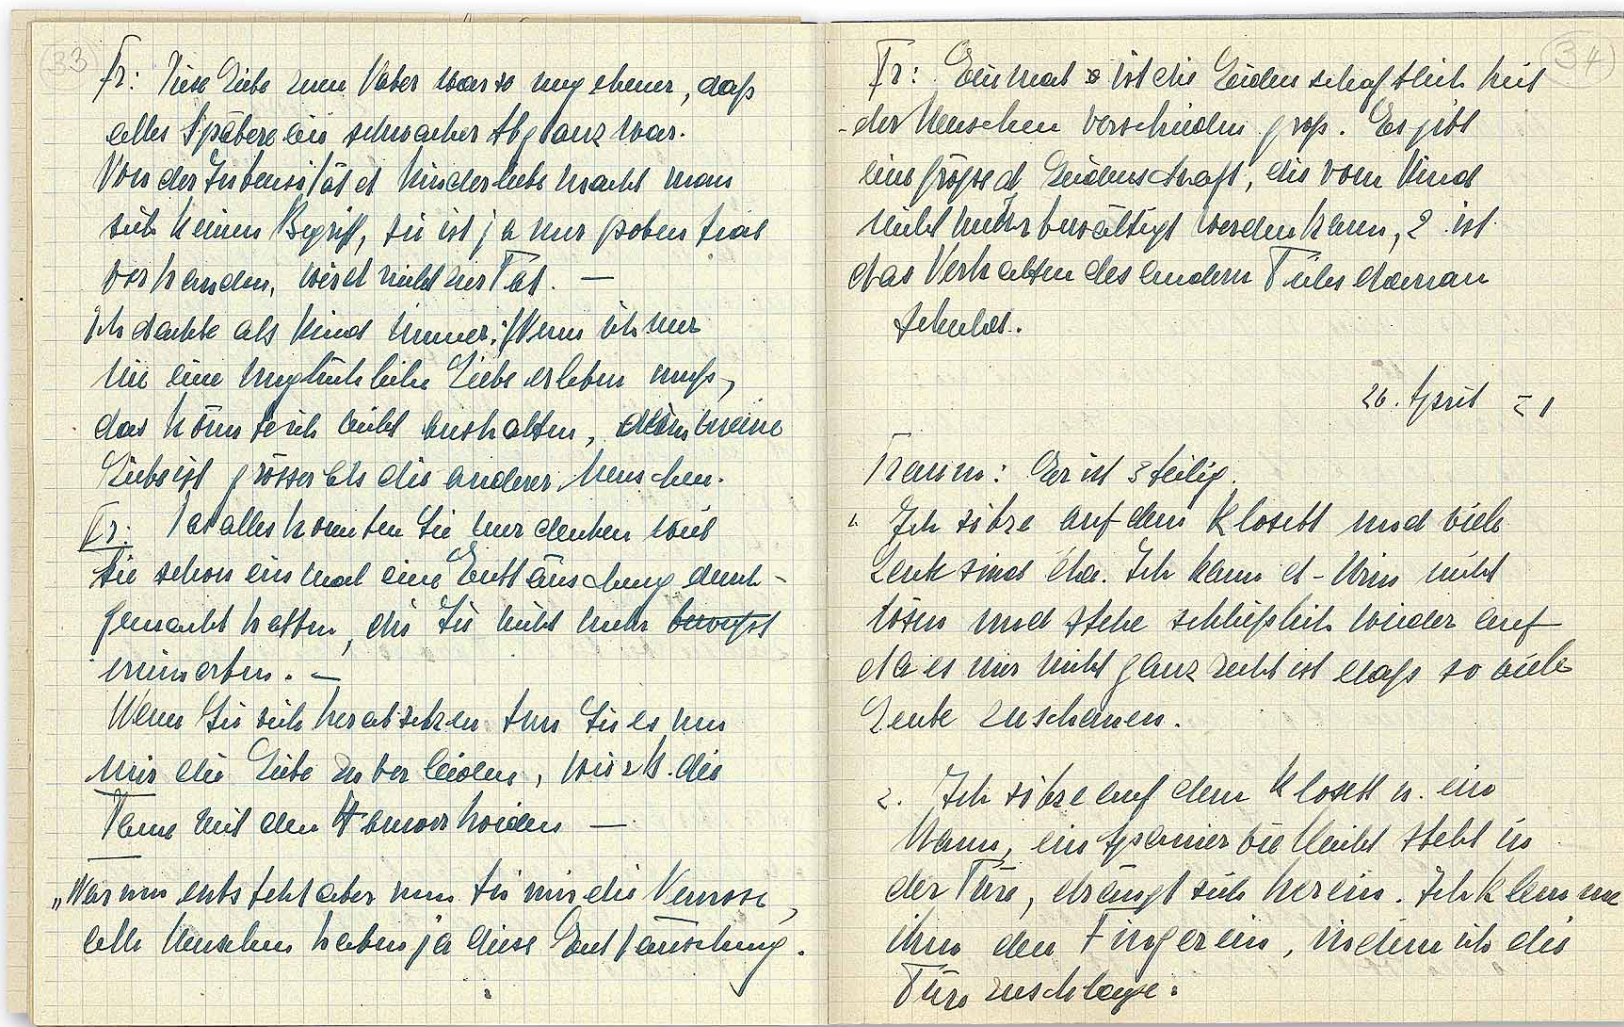 33
Fr: Diese Liebe zum Vater war so ungeheuer, daß
alles Spätere ein schwacher Abglanz war.
Von der Intensität d Kinderliebe macht man
sich keinen Begriff, sie ist ja nur potential
vorhanden, wird nicht zur Tat. —
Ich dachte als Kind immer: Wenn ich nur
nie eine unglückliche Liebe erleben muß,
das könnte ich nicht aushalten, denn meine
Liebe ist grösser als die anderer Menschen.
Fr: Das alles konnten Sie nur denken weil
Sie schon einmal eine Enttäuschung durch-
gemacht hatten, die Sie nicht mehr bewußt
erinnerten. —
Wenn Sie sich herabsetzen tun Sie es um
mir die Liebe zu verleiden, wie z.B. die
Dame mit den Hämorrhoiden —
„Warum entsteht aber nun bei mir die Neurose,
alle Menschen haben ja diese Enttäuschung.
34
Fr: Einmal ist die Leidenschaftlichkeit
der Menschen verschieden groß. Es gibt
eine Größe d Leidenschaft, die vom Kind
nicht mehr bewältigt werden kann, 2. ist
das Verhalten des andern Teiles daran
schuld.
26. April
Traum: Er ist 3 teilig.
1. Ich sitze auf dem Klosett und viele
Leute sind da. Ich kann d-Urin nicht
lösen und stehe schließlich wieder auf
da es mir nicht ganz recht ist daß so viele
Leute zuschauen.
2. Ich sitze auf dem Klosett u. ein
Mann, ein Spanier vielleicht steht in
der Türe, drängt sich herein. Ich klemme
ihm den Finger ein, indem ich die
Türe zuschlage.